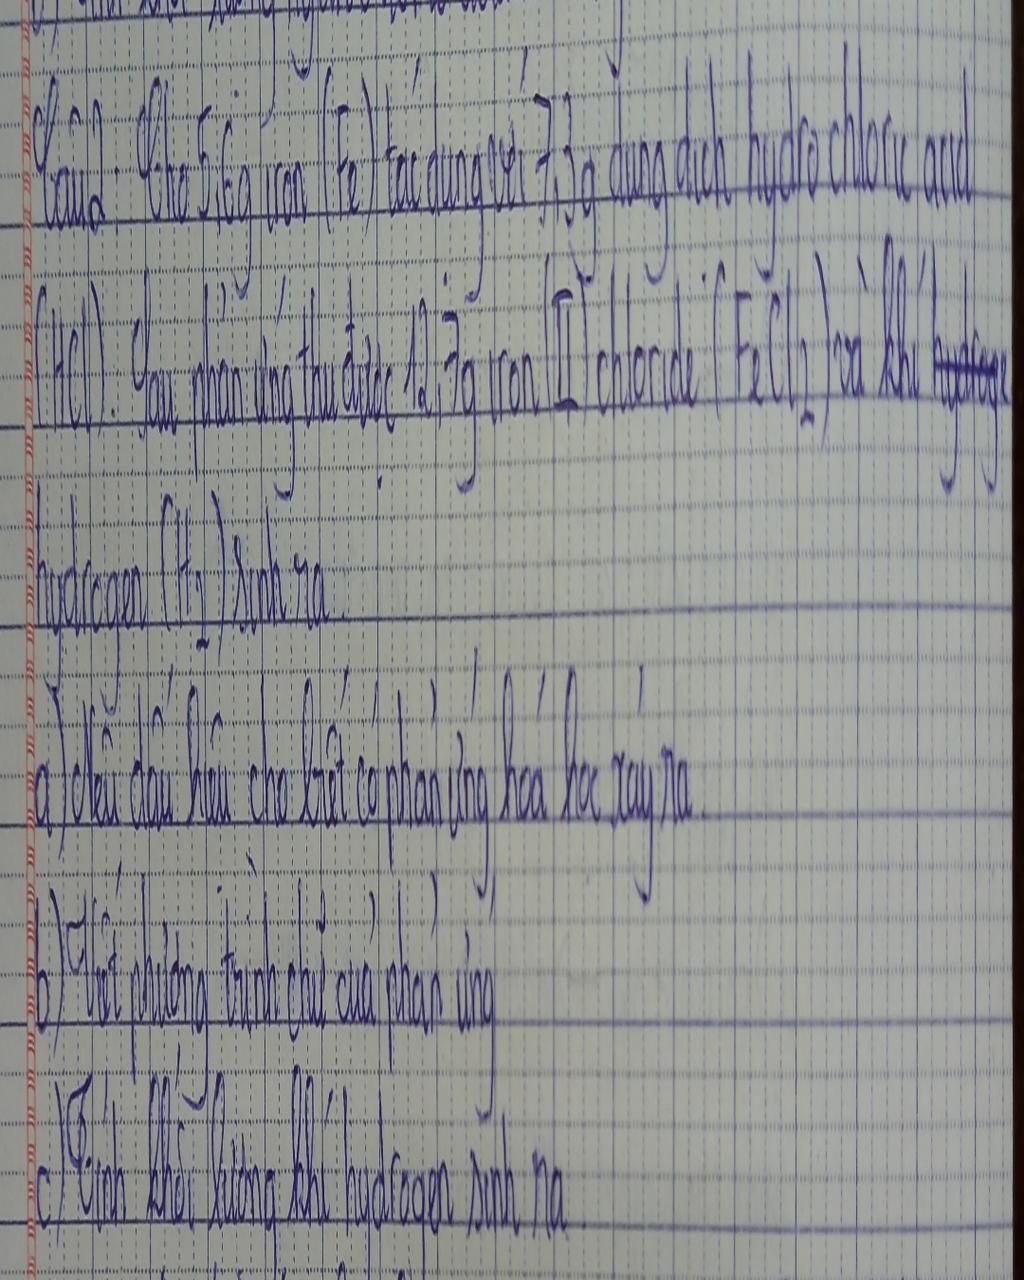 Câu 2. Cho 5,6g iron (Fe) tác dụng với 7,3g dung dịch hydrochloric acid
(HCl). Sau phản ứng thu được 12,7g iron (II) chloride (FeCl2) và khí
hydrogen (H2) sinh ra.
a) Nêu dấu hiệu cho biết có phản ứng hoá học xảy ra.
b) Viết phương trình chữ của phản ứng
c) Tính khối lượng khí hydrogen sinh ra.